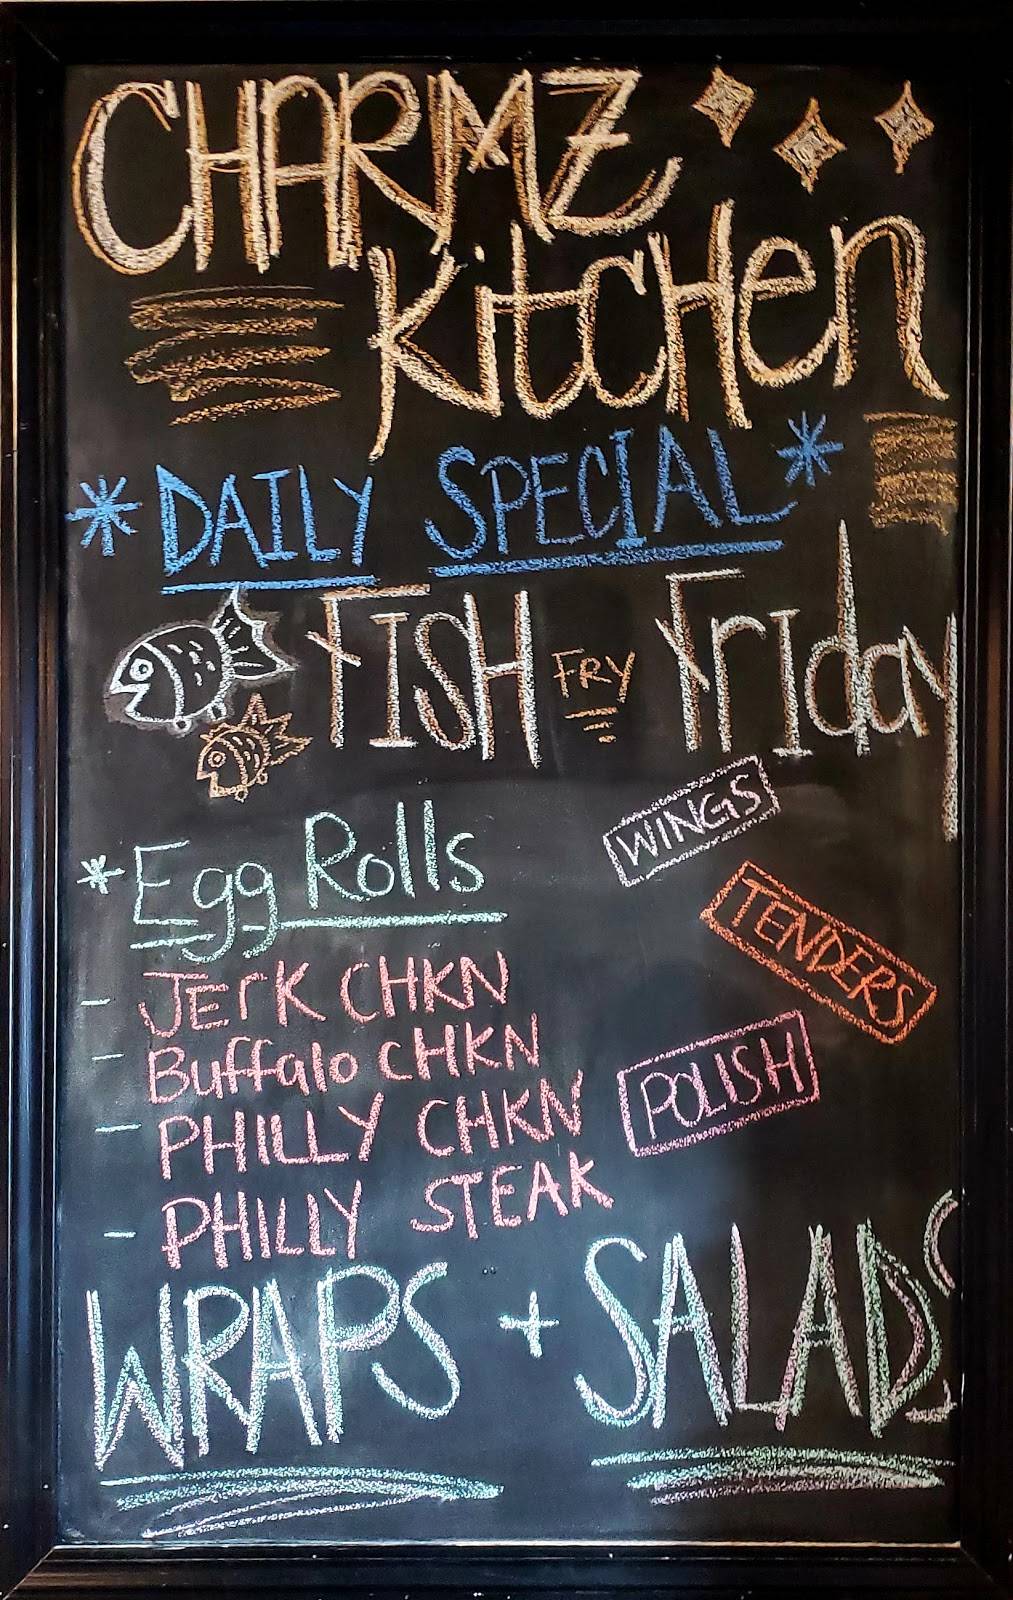 CHARMZ
KitcHen
*DAILY SPECIAL*
FISH FRY FrIday
WINGS
*Egg Rolls
TENDERS
- JErK CHKN
- Buffalo CHKN
- PHILLY CHKN
POLISH
- PHILLY STEAK
WRAPS + SALADS